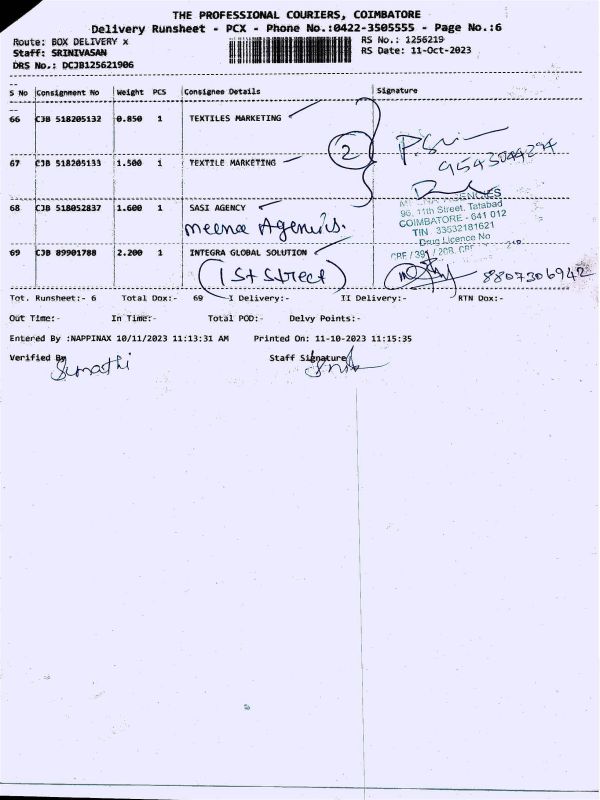 THE PROFESSIONAL COURIERS, COIMBATORE
Delivery Runsheet - PCX - Phone No.:0422-3505555 - Page No.:6
Route: BOX DELIVERY x
RS No.: 1256219
Staff: SRINIVASAN
RS Date: 11-Oct-2023
DRS No.: DCJB125621906
S No Consignment No Weight PCS Consignee Details Signature
66 CJB 518205132 0.850 1 TEXTILES MARKETING
2
9543044294
67 CJB 518205133 1.500 1 TEXTILE MARKETING
68 CJB 518052837 1.600 1 SASI AGENCY
AGENCIES
96, 11th Street, Tatabad
COIMBATORE - 641 012
TIN 33632181621
Drug Licence No
meena Agencies.
69 CJB 89901788 2.200 1 INTEGRA GLOBAL SOLUTION
(1st street)
8807306942
Tot. Runsheet:- 6 Total Dox:- 69 I Delivery:- II Delivery:- RTN Dox:-
Out Time:- In Time:- Total POD:- Delvy Points:-
Entered By :NAPPINAX 10/11/2023 11:13:31 AM Printed On: 11-10-2023 11:15:35
Verified By Staff Signature
Sumathi